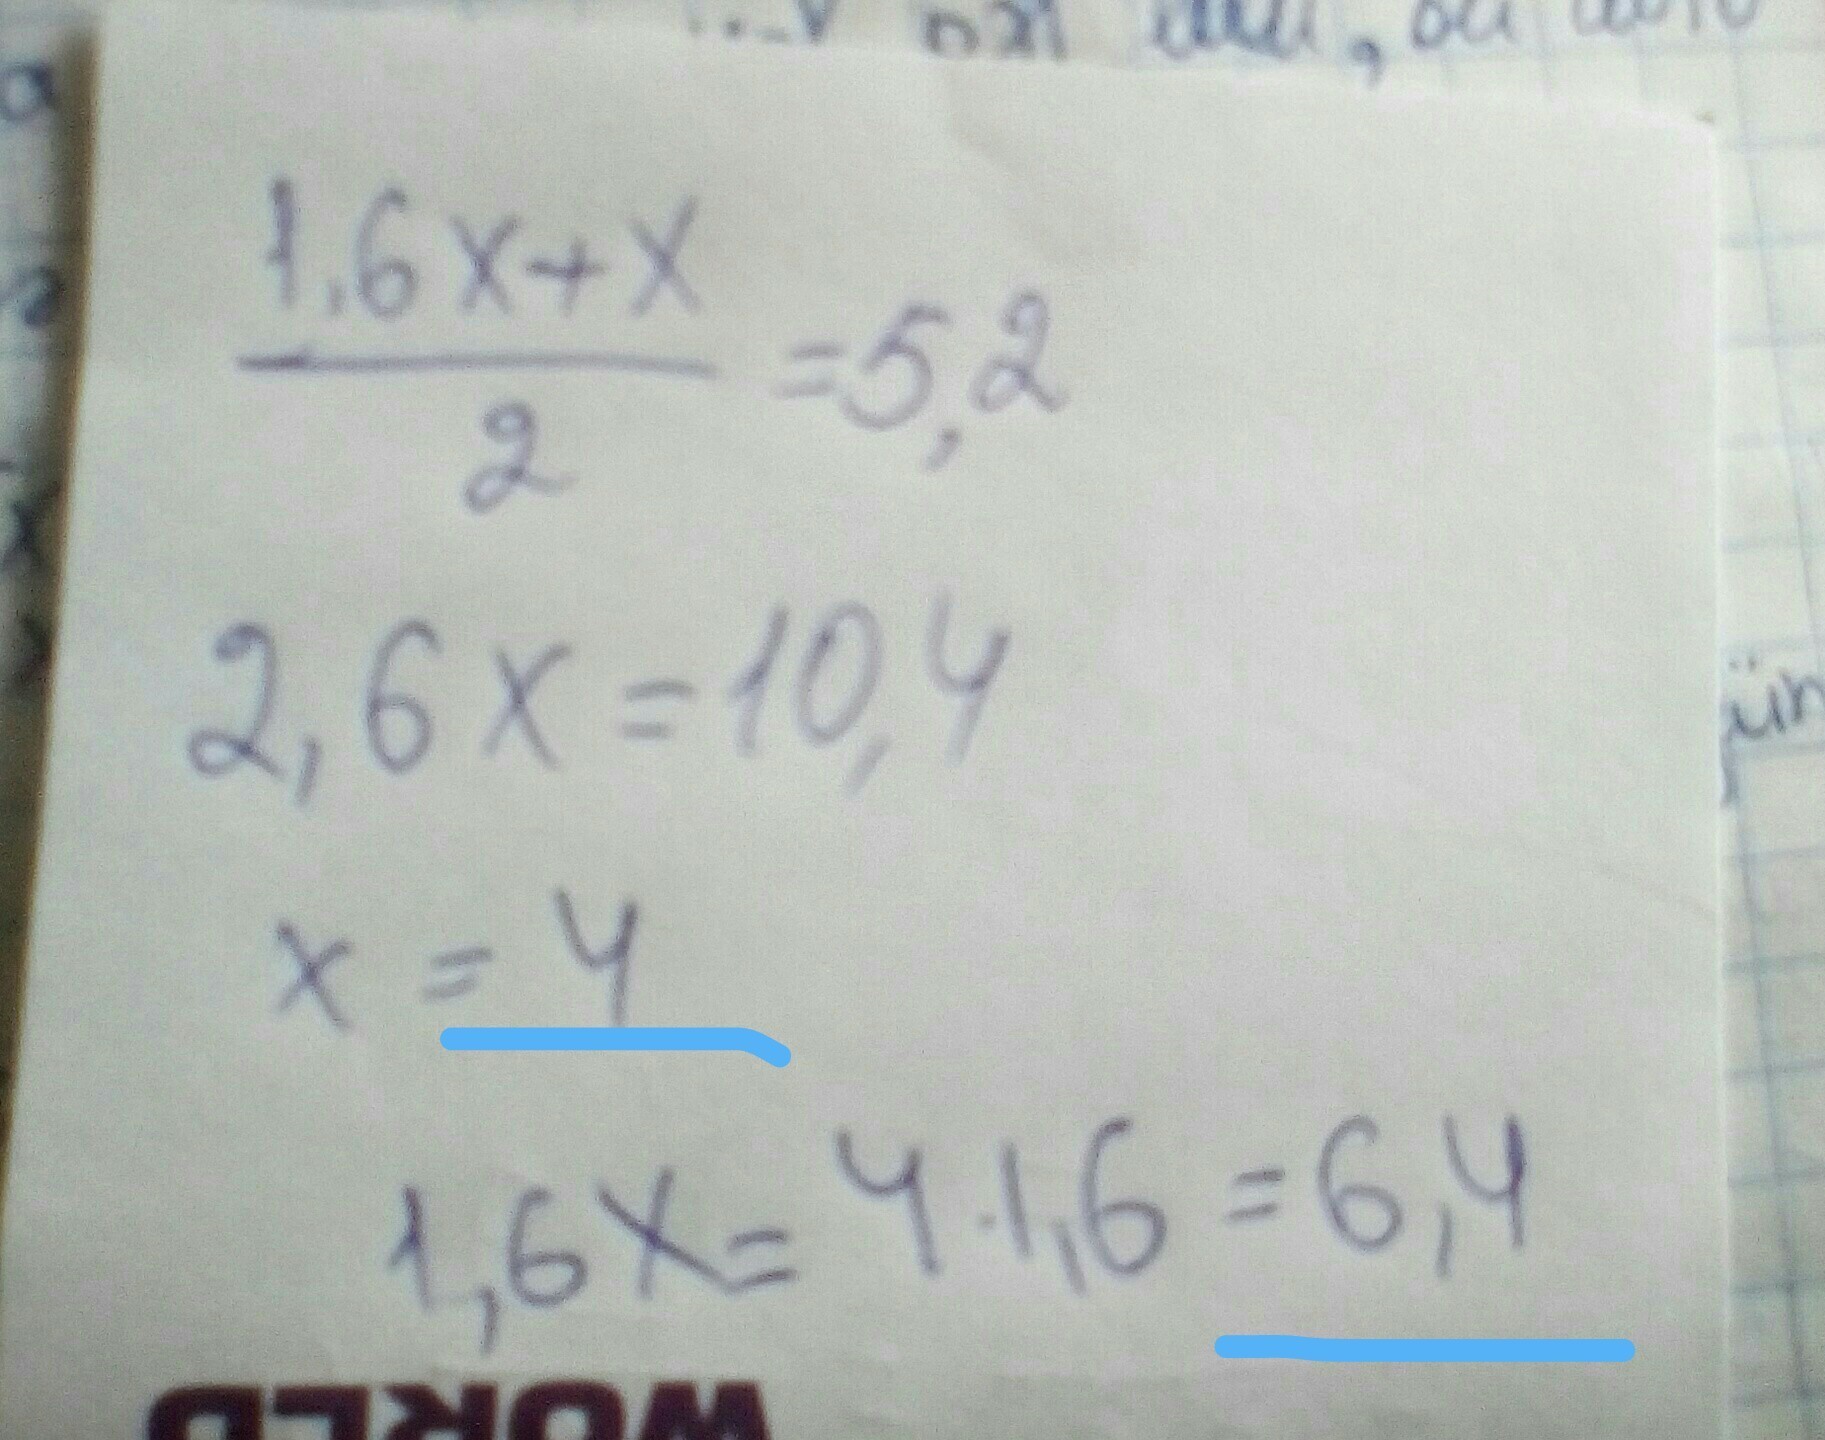 1,6x+x
2
=5,2
2,6x=10,4
x = 4
1,6x=4·1,6=6,4
WORLD